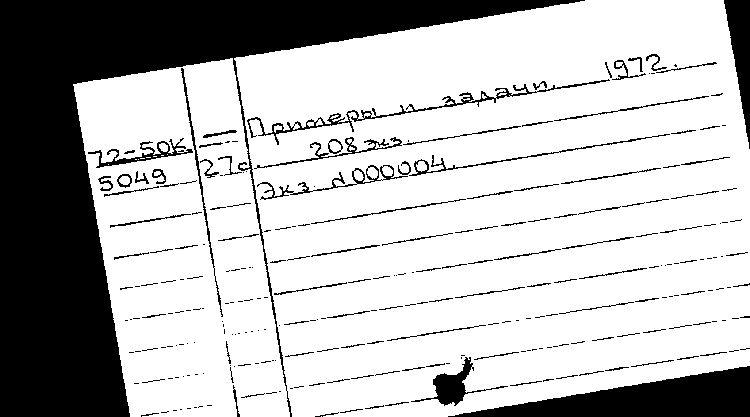 72-50к. — Примеры и задачи. 1972.
5049 27с. 208 экз.
Экз №000004.